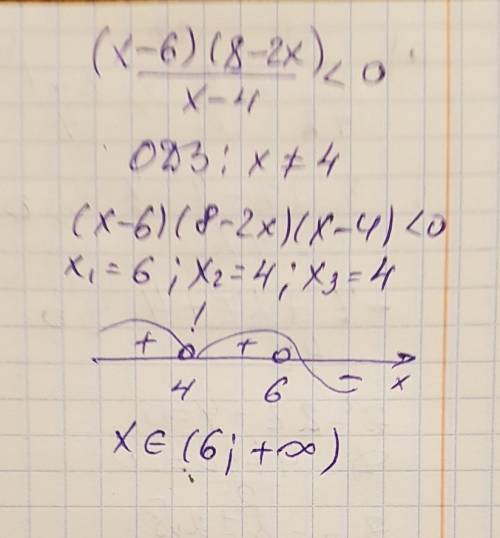 (x-6)(8-2x)/x-4 < 0
ОДЗ: x ≠ 4
(x-6)(8-2x)(x-4)<0
x₁=6; x₂=4; x₃=4
!
+ + -
4 6 x
x∈(6;+∞)